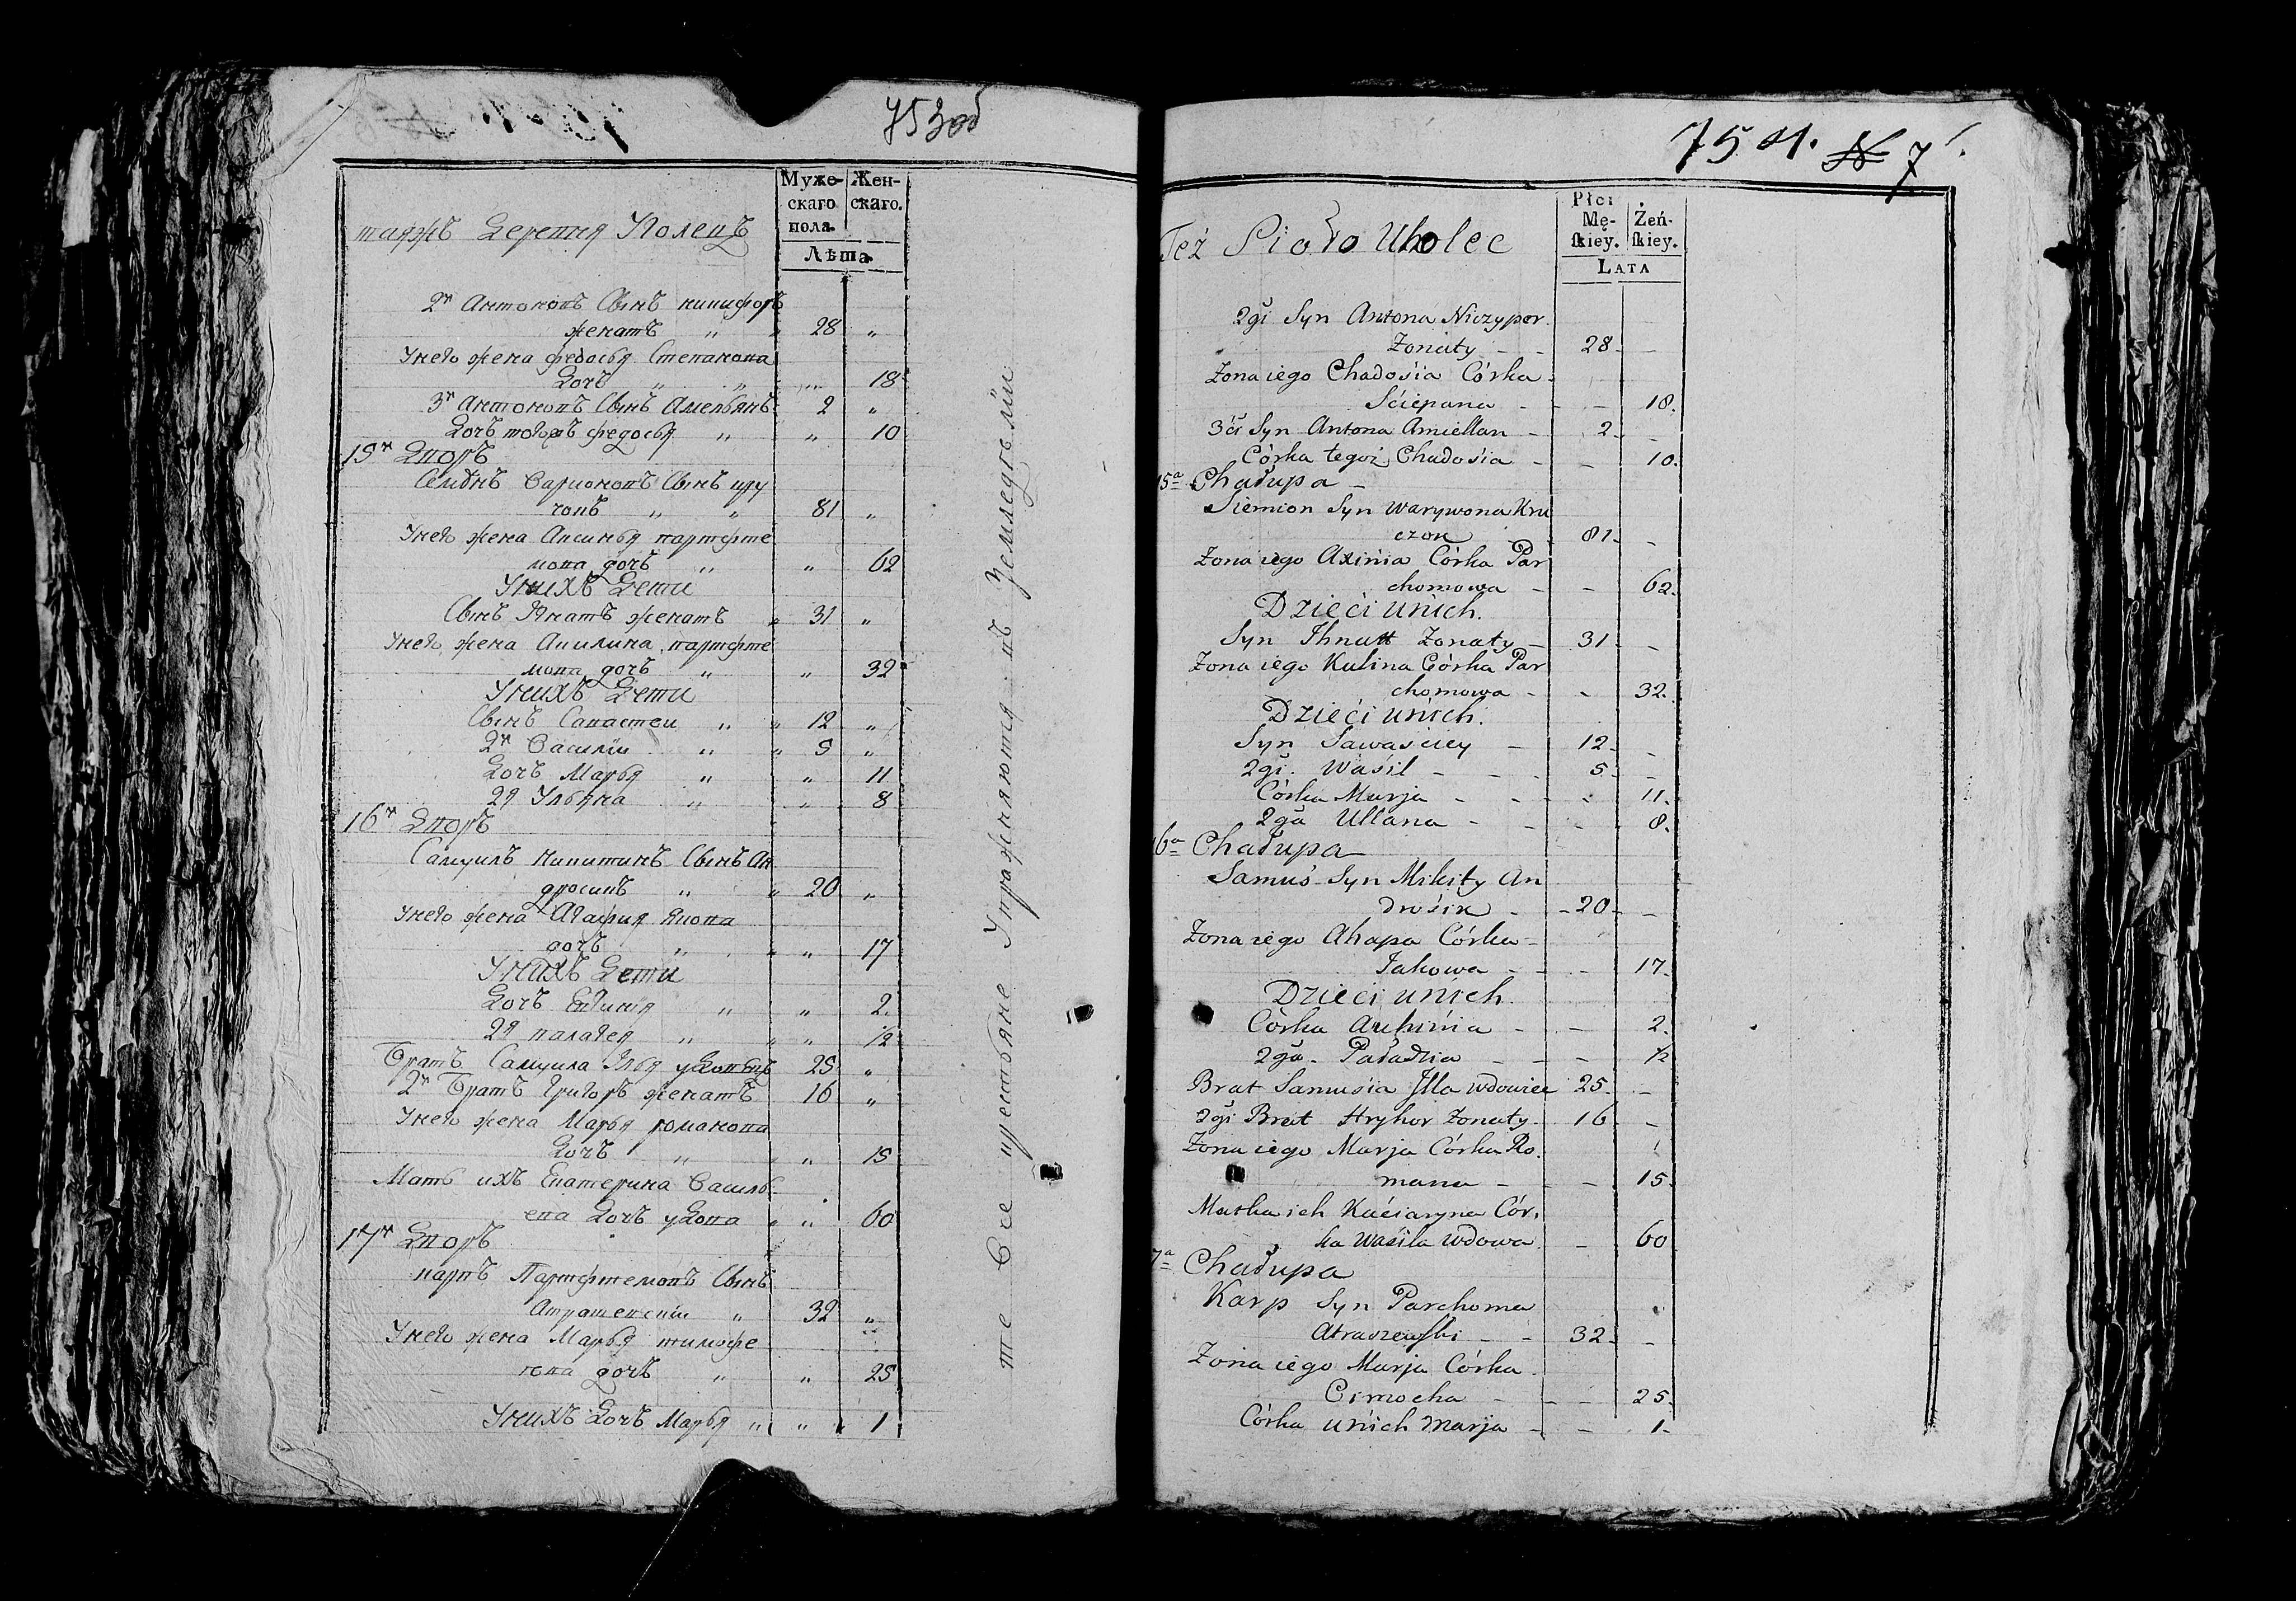 753об
Мужескаго пола.
Женскаго.
Лѣта
таяжъ Деревня Уголецъ
2й Антоновъ Сынъ никифоръ
женатъ " " 28 "
Унего жена федосья Степанова
Дочь " " " 18
3й Антоновъ Сынъ Амельянъ 2 "
Дочь тогожъ федосья " " 10
15й Дворъ
Семёнъ Ларионовъ Сынъ кру
чокъ " " 81 "
Унего жена Аксинья парфе
нова дочь " " 62
Унихъ Дети
Сынъ Игнатъ женатъ " 31 "
Унего жена Акилина парфе
нова дочь " " 32
Унихъ Дети
Сынъ Савастей " " 12 "
2й Василій " " 5 "
Дочь Марья " " 11
2я Ульяна " " 8
16й Дворъ
Самуилъ Никитинъ Сынъ Ан
дросикъ " " 20 "
Унего жена Агафия Якова
дочь " " " 17
Унихъ Дети
Дочь Евгиня " " 2
2я палагея " " " 1/2
Братъ Самуила Илья удовецъ 25 "
2й Братъ Григоръ женатъ 16 "
Унего жена Марья романова
Дочь " " " 15
Мать ихъ Екатерина Василь
ева Дочь удова " " 60
17й Дворъ
карпъ Парфеновъ Сынъ
Атрашевскій " 32 "
Унего жена Марья тимофе
ева дочь " " 25
Унихъ Дочь Марья " " " 1
те Все крестьяне Упражняются въ Земледельліи
754. N 7
Płci Męſkiey.
Żeńſkiey.
LATA
Też Sioło Uholec
2gi Syn Antona Niczypor
Żonaty - - 28 - -
Żona iego Chadośia Córka
Ściepana - - - 18.
3ći Syn Antona Amiellan - 2 - -
Córka tegoż Chadośia - - 10.
15a Chałupa -
Siemion Syn Warywona Kru
czok - 81 - -
Żona iego Axinia Córka Par
chomowa - - 62.
Dzieći unich.
Syn Ihnatt Żonaty - 31 - -
Żona iego Kulina Córka Par
chomowa - - 32.
Dzieći unich.
Syn Sawaściey - 12 - -
2gi. Waśil - - - 5 - -
Córka Marja - - - 11.
2ga Ullana - - - 8.
16a Chałupa
Samuś Syn Mikity An
drośik - - 20 - -
Żona iego Ahapa Córka -
Jakowa - - - 17.
Dzieci unich.
Córka Auhinia - - 2.
2ga - Paładzia - - - 1/2
Brat Samuśia Jlla Wdowiec 25 - -
2gi Brat Hryhor Żonaty - 16 - -
Żona iego Marja Córka Ro.
mana - - 15.
Matka ich Kaćiaryna Cór.
ka Waśila Wdowa - 60
17a Chałupa
Karp Syn Parchoma
Atraszewſki - - 32 - -
Żona iego Marja Córka -
Cimocha - - - 25.
Córka unich Marja - - 1.